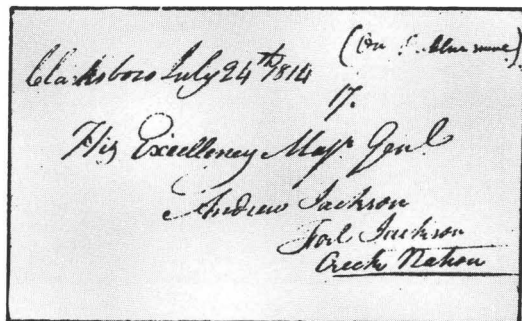 (On Public service)
Clarksboro July 24th 1814
17.
His Excellency Majr Genl
Andrew Jackson
Fort Jackson
Creek Nation